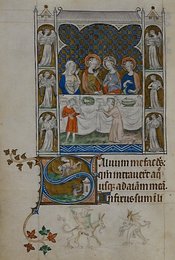 Saluum me fac ds
qm intrauert aq
usq ad aiam mea
ifixus sum i li